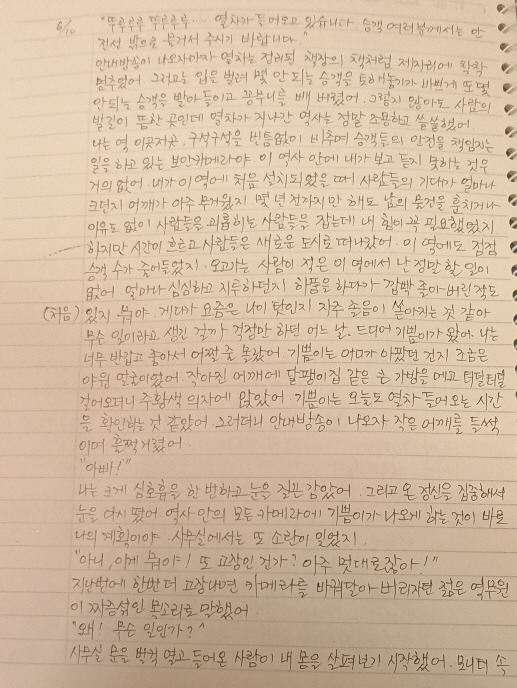 6/10
"뚜루루루 뚜루루루... 열차가 들어오고 있습니다. 승객 여러분께서는 안
전선 밖으로 물러서 주시기 바랍니다."
안내방송이 나오자마자 열차는 정리된 책장의 책처럼 제자리에 착착
멈추었어. 그러고는 입을 벌려 몇 안 되는 승객을 토해놓기가 바쁘게 또 몇
안 되는 승객을 받아 들이고 꽁무니를 빼 버렸어. 그렇지 않아도 사람의
발길이 뜸한 곳인데 열차가 지나간 역사는 정말 조용하고 쓸쓸했어
나는 역 이곳저곳, 구석구석을 빈틈없이 비추며 승객들의 안전을 책임지는
일을 하고 있는 보안카메라야. 이 역사 안에 내가 보고 듣지 못하는 것은
거의 없어. 내가 이 역에 처음 설치되었을 때 사람들의 기대가 얼마나
크던지 어깨가 아주 무거웠지. 몇 년 전까지만 해도 남의 물건을 훔치거나
이유도 없이 사람들을 괴롭히는 사람들을 잡는데 내 힘이 꼭 필요했었지.
하지만 시간이 흐르고 사람들은 새로운 도시로 떠나갔어. 이 역에도 점점
승객 수가 줄어들었지. 오고가는 사람이 적은 이 역에서 난 정말 할 일이
없어. 얼마나 심심하고 지루하던지 하품을 하다가 깜빡 졸아 버린 적도
(처음) 있지 뭐야. 게다가 요즘은 나이 탓인지 자주 졸음이 쏟아지는 것 같아
무슨 일이라고 생긴 걸까 걱정만 하던 어느 날, 드디어 기쁨이가 왔어. 나는
너무 반갑고 좋아서 어쩔 줄 몰랐어. 기쁨이는 어디가 아팠던 건지 조금은
야윈 얼굴이었어. 작아진 어깨에 달팽이집 같은 큰 가방을 메고 터덜터덜
걸어오더니 주황색 의자에 앉았어. 기쁨이는 오늘도 열차 들어오는 시간
을 확인하는 것 같았어. 그러더니 안내방송이 나오자 작은 어깨를 들썩
이며 훌쩍거렸어.
"아빠!"
나는 크게 심호흡을 한 번하고 눈을 질끈 감았어. 그리고 온 정신을 집중해서
눈을 다시 떴어. 역사 안의 모든 카메라에 기쁨이가 나오게 하는 것이 바로
나의 계획이야. 사무실에서는 또 소란이 일었지.
"아니, 이게 뭐야! 또 고장인 건가? 아주 멋대로잖아!"
지난번에 한번 더 고장내면 카메라를 바꿔달아 버리자던 젊은 역무원
이 짜증섞인 목소리로 말했어
"왜! 무슨 일인가?"
사무실 문을 벌컥 열고 들어온 사람이 내 몸을 살펴보기 시작했어. 모니터 속